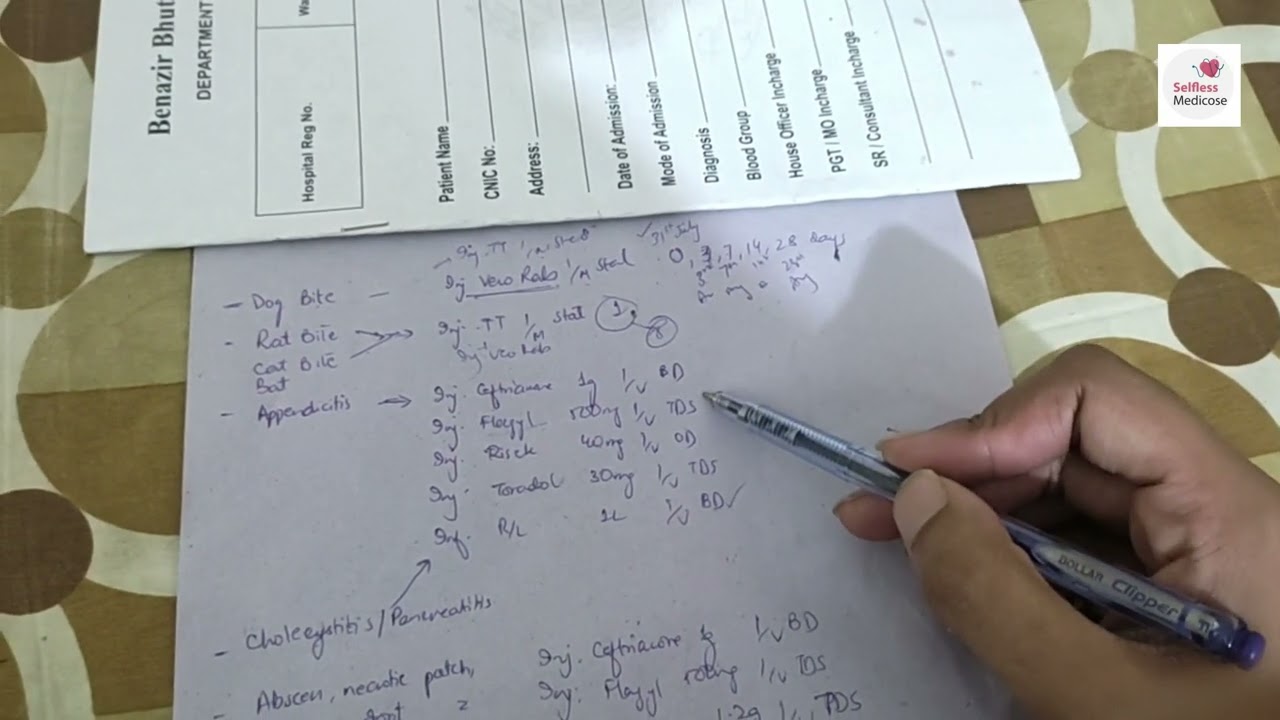 Selfless
Medicose
Benazir Bhut
DEPARTMENT
Wa
Hospital Reg No.
Patient Name
CNIC No:
Address:
Date of Admission:
Mode of Admission
Diagnosis
Blood Group
House Officer Incharge
PGT / MO Incharge
SR / Consultant Incharge
Inj. TT I/M Stat 31st July
- Dog Bite — Inj Vero Rab I/M Stat 0, 3, 7, 14, 28 days
- Rat Bite → Inj. TT I/M Stat 1
Cat Bite Inj Vero Rab
Bat
- Appendicitis → Inj. Ceftriaxone 1g I/V BD
Inj. Flagyl 500mg I/V TDS
Inj. Risek 40mg I/V OD
Inj. Toradol 30mg I/V TDS
Inf. R/L 1L I/V BD ✓
- Cholecystitis/Pancreatitis
- Abscess, necrotic patch, Inj. Ceftriaxone 1g I/V BD
Inj. Flagyl 500mg I/V TDS
1.2g I/V TDS
DOLLAR Clipper